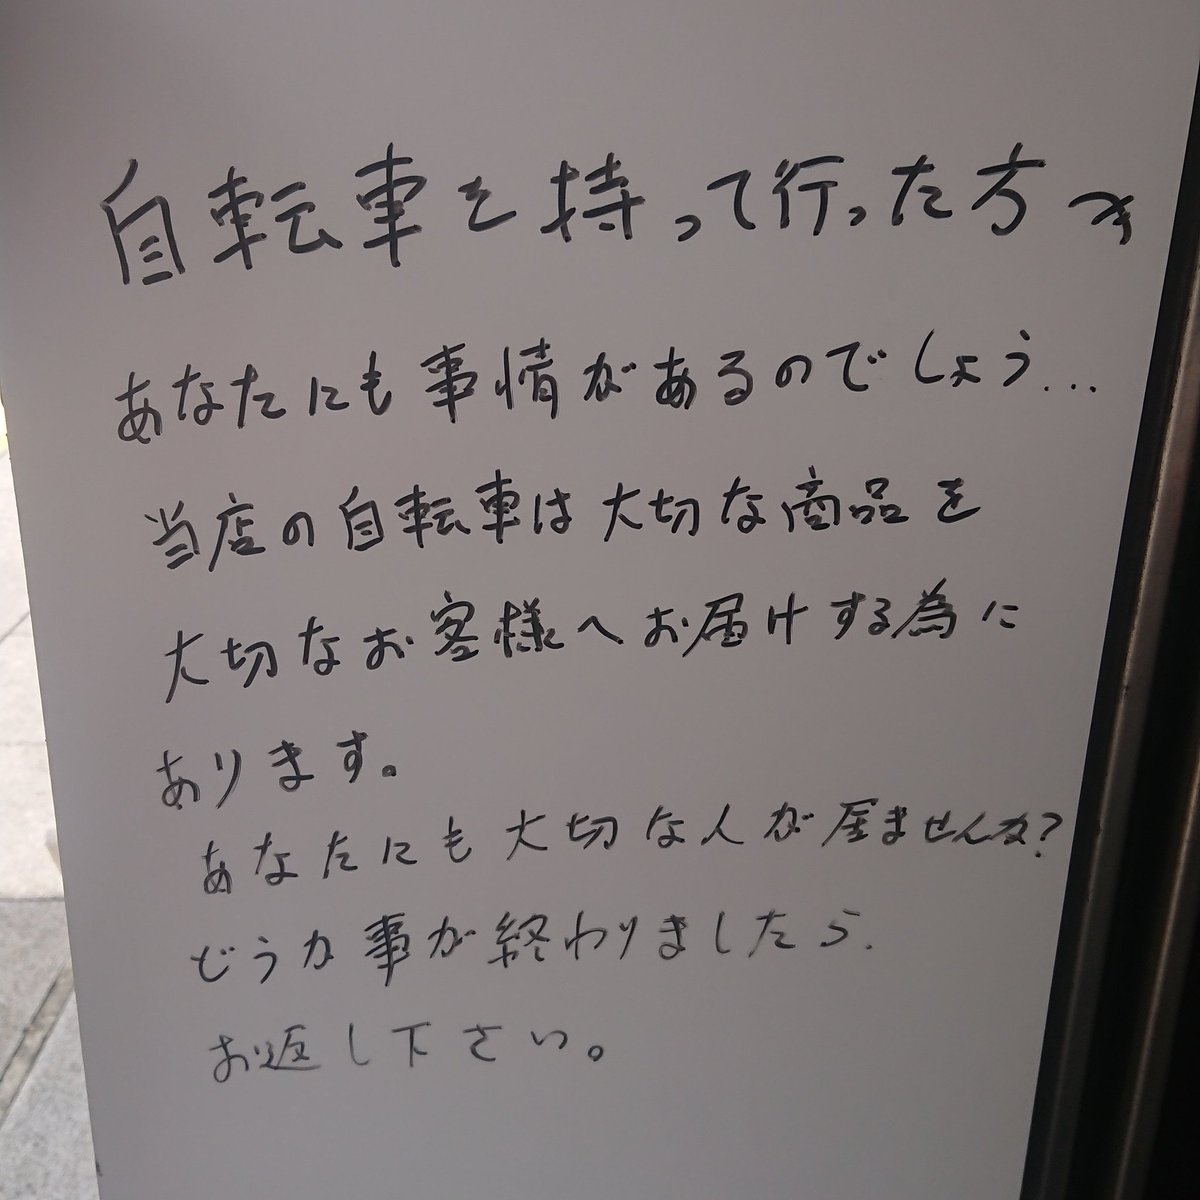 自転車を持って行った方へ
あなたにも事情があるのでしょう…
当店の自転車は大切な商品を
大切なお客様へお届けする為に
あります。
あなたにも大切な人が居ませんか?
どうか事が終わりましたら、
お返し下さい。